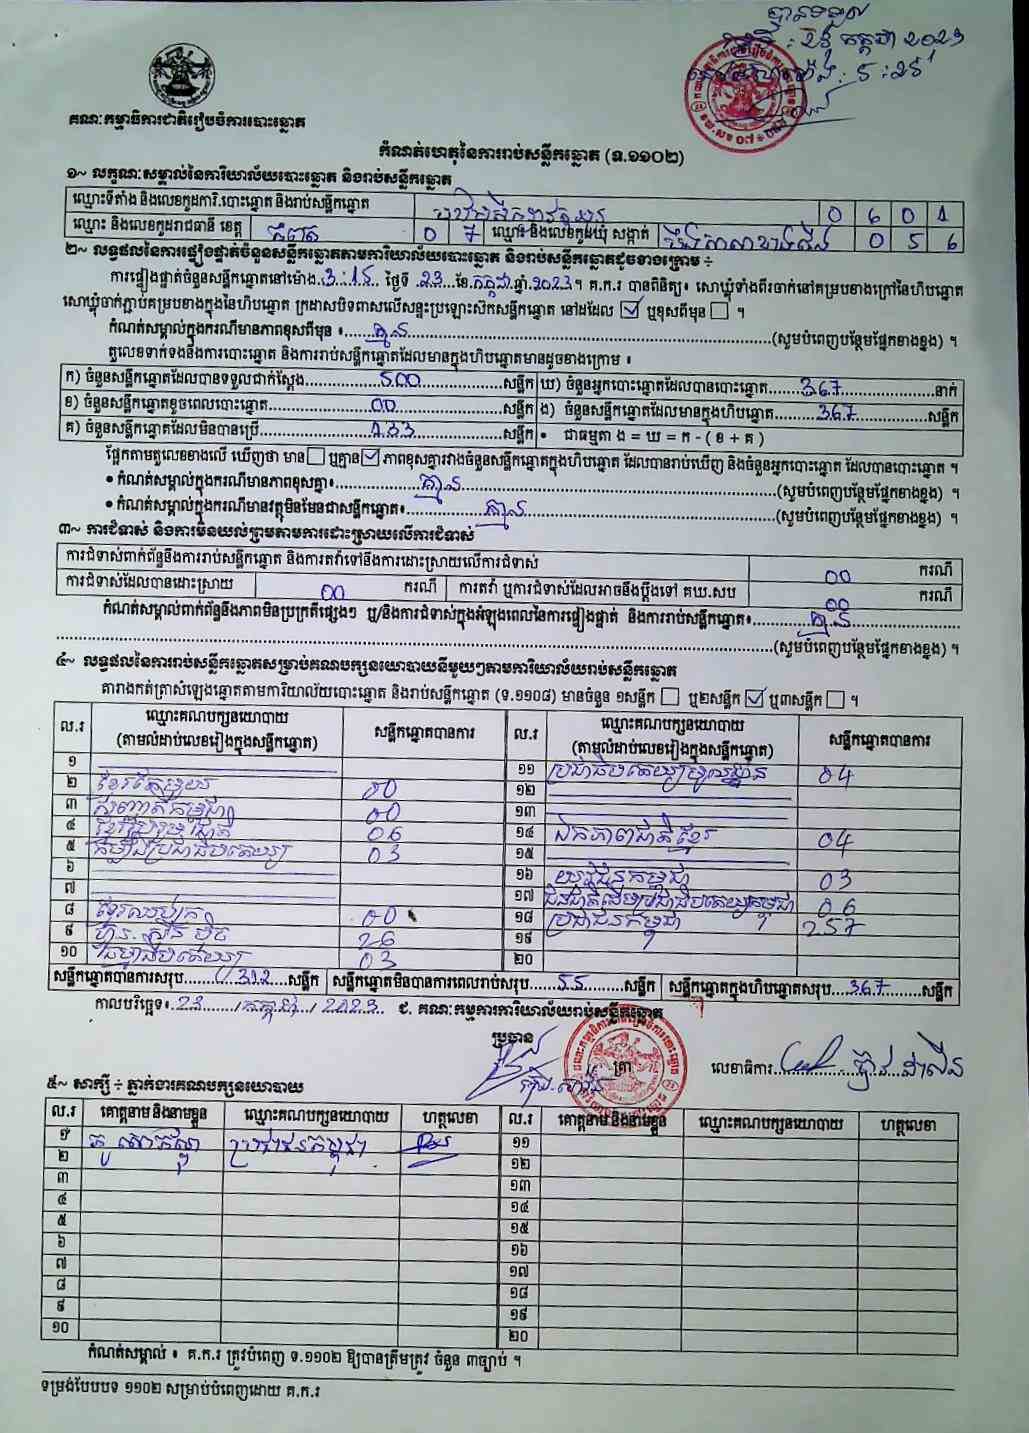 បានទទួល
ថ្ងៃទី : 23 កក្កដា 2023
ម៉ោង : 5 : 25
គណៈកម្មាធិការជាតិរៀបចំការបោះឆ្នោត
កំណត់ហេតុនៃការរាប់សន្លឹកឆ្នោត (ទ.១១០២)
១~ លក្ខណៈសម្គាល់នៃការិយាល័យបោះឆ្នោត និងរាប់សន្លឹកឆ្នោត
ឈ្មោះទីតាំង និងលេខកូដការិ.បោះឆ្នោត និងរាប់សន្លឹកឆ្នោត 0 6 0 1
ឈ្មោះ និងលេខកូដរាជធានី ខេត្ត កំពត 0 7 ឈ្មោះ និងលេខកូដឃុំ សង្កាត់ 0 5 6
២~ លទ្ធផលនៃការផ្ទៀងផ្ទាត់ចំនួនសន្លឹកឆ្នោតតាមការិយាល័យបោះឆ្នោត និងរាប់សន្លឹកឆ្នោតដូចខាងក្រោម ÷
ការផ្ទៀងផ្ទាត់ចំនួនសន្លឹកឆ្នោតនៅម៉ោង 3:15 ថ្ងៃទី 23 ខែ កក្កដា ឆ្នាំ 2023 ។ គ.ក.រ បានពិនិត្យ៖ សោឃ្លុំទាំងពីរចាក់នៅគម្របខាងក្រៅនៃហិបឆ្នោត
សោឃ្លុំចាក់ភ្ជាប់គម្របខាងក្នុងនៃហិបឆ្នោត ក្រដាសបិទពាសលើសន្ទះប្រឡោះស៊កសន្លឹកឆ្នោត នៅដដែល ☑ ឬខុសពីមុន ☐ ។
កំណត់សម្គាល់ក្នុងករណីមានភាពខុសពីមុន ៖ គ្មាន (សូមបំពេញបន្ថែមផ្នែកខាងខ្នង) ។
តួលេខទាក់ទងនឹងការបោះឆ្នោត និងការរាប់សន្លឹកឆ្នោតដែលមានក្នុងហិបឆ្នោតមានដូចខាងក្រោម ៖
ក) ចំនួនសន្លឹកឆ្នោតដែលបានទទួលជាក់ស្តែង 500 សន្លឹក ឃ) ចំនួនអ្នកបោះឆ្នោតដែលបានបោះឆ្នោត 367 នាក់
ខ) ចំនួនសន្លឹកឆ្នោតខូចពេលបោះឆ្នោត 00 សន្លឹក ង) ចំនួនសន្លឹកឆ្នោតដែលមានក្នុងហិបឆ្នោត 367 សន្លឹក
គ) ចំនួនសន្លឹកឆ្នោតដែលមិនបានប្រើ 133 សន្លឹក • ជាធម្មតា ង = ឃ = ក - ( ខ + គ )
ផ្អែកតាមតួលេខខាងលើ ឃើញថា មាន ☐ ឬគ្មាន ☑ ភាពខុសគ្នារវាងចំនួនសន្លឹកឆ្នោតក្នុងហិបឆ្នោត ដែលបានរាប់ឃើញ និងចំនួនអ្នកបោះឆ្នោត ដែលបានបោះឆ្នោត ។
• កំណត់សម្គាល់ក្នុងករណីមានភាពខុសគ្នា៖ គ្មាន (សូមបំពេញបន្ថែមផ្នែកខាងខ្នង) ។
• កំណត់សម្គាល់ក្នុងករណីមានវត្ថុមិនមែនជាសន្លឹកឆ្នោត៖ គ្មាន (សូមបំពេញបន្ថែមផ្នែកខាងខ្នង) ។
៣~ ការជំទាស់ និងការមិនយល់ព្រមតាមការដោះស្រាយលើការជំទាស់
ការជំទាស់ពាក់ព័ន្ធនឹងការរាប់សន្លឹកឆ្នោត និងការតវ៉ាទៅនឹងការដោះស្រាយលើការជំទាស់ 00 ករណី
ការជំទាស់ដែលបានដោះស្រាយ 00 ករណី ការតវ៉ា ឬការជំទាស់ដែលអាចនឹងប្តឹងទៅ គឃ.សប 00 ករណី
កំណត់សម្គាល់ពាក់ព័ន្ធនឹងភាពមិនប្រក្រតីផ្សេងៗ ឬ/និងការជំទាស់ក្នុងអំឡុងពេលនៃការផ្ទៀងផ្ទាត់ និងការរាប់សន្លឹកឆ្នោត៖ គ្មាន
(សូមបំពេញបន្ថែមផ្នែកខាងខ្នង) ។
៤~ លទ្ធផលនៃការរាប់សន្លឹកឆ្នោតសម្រាប់គណបក្សនយោបាយនីមួយៗតាមការិយាល័យរាប់សន្លឹកឆ្នោត
តារាងកត់ត្រាសំឡេងឆ្នោតតាមការិយាល័យបោះឆ្នោត និងរាប់សន្លឹកឆ្នោត (ទ.១១០៨) មានចំនួន ១សន្លឹក ☐ ឬ២សន្លឹក ☑ ឬ៣សន្លឹក ☐ ។
ល.រ ឈ្មោះគណបក្សនយោបាយ (តាមលំដាប់លេខរៀងក្នុងសន្លឹកឆ្នោត) សន្លឹកឆ្នោតបានការ ល.រ ឈ្មោះគណបក្សនយោបាយ (តាមលំដាប់លេខរៀងក្នុងសន្លឹកឆ្នោត) សន្លឹកឆ្នោតបានការ
១ ១១ ប្រជាធិបតេយ្យមូលដ្ឋាន 04
២ ខ្មែរតែមួយ 00 ១២
៣ សញ្ជាតិកម្ពុជា 00 ១៣
៤ ខ្មែររួបរួមជាតិ 06 ១៤ ឯកភាពជាតិខ្មែរ 04
៥ កម្លាំងប្រជាធិបតេយ្យ 03 ១៥
៦ ១៦ យុវជនកម្ពុជា 03
៧ ១៧ ជនជាតិដើមប្រជាធិបតេយ្យកម្ពុជា 06
៨ ខ្មែរឈប់ក្រ 00 ១៨ ប្រជាជនកម្ពុជា 257
៩ ហ្វ៊ុនស៊ិនប៉ិច 26 ១៩
១០ ធម្មាធិបតេយ្យ 03 ២០
សន្លឹកឆ្នោតបានការសរុប 312 សន្លឹក សន្លឹកឆ្នោតមិនបានការពេលរាប់សរុប 55 សន្លឹក សន្លឹកឆ្នោតក្នុងហិបឆ្នោតសរុប 367 សន្លឹក
កាលបរិច្ឆេទ៖ 23 / កក្កដា / 2023 ជ. គណៈកម្មការការិយាល័យរាប់សន្លឹកឆ្នោត
ប្រធាន ត្រា លេខាធិការ
៥~ សាក្សី ÷ ភ្នាក់ងារគណបក្សនយោបាយ
ល.រ គោត្តនាម និងនាមខ្លួន ឈ្មោះគណបក្សនយោបាយ ហត្ថលេខា ល.រ គោត្តនាម និងនាមខ្លួន ឈ្មោះគណបក្សនយោបាយ ហត្ថលេខា
១ ប្រជាជនកម្ពុជា ១១
២ ១២
៣ ១៣
៤ ១៤
៥ ១៥
៦ ១៦
៧ ១៧
៨ ១៨
៩ ១៩
១០ ២០
កំណត់សម្គាល់ ៖ គ.ក.រ ត្រូវបំពេញ ទ.១១០២ ឱ្យបានត្រឹមត្រូវ ចំនួន ៣ច្បាប់ ។
ទម្រង់បែបបទ ១១០២ សម្រាប់បំពេញដោយ គ.ក.រ